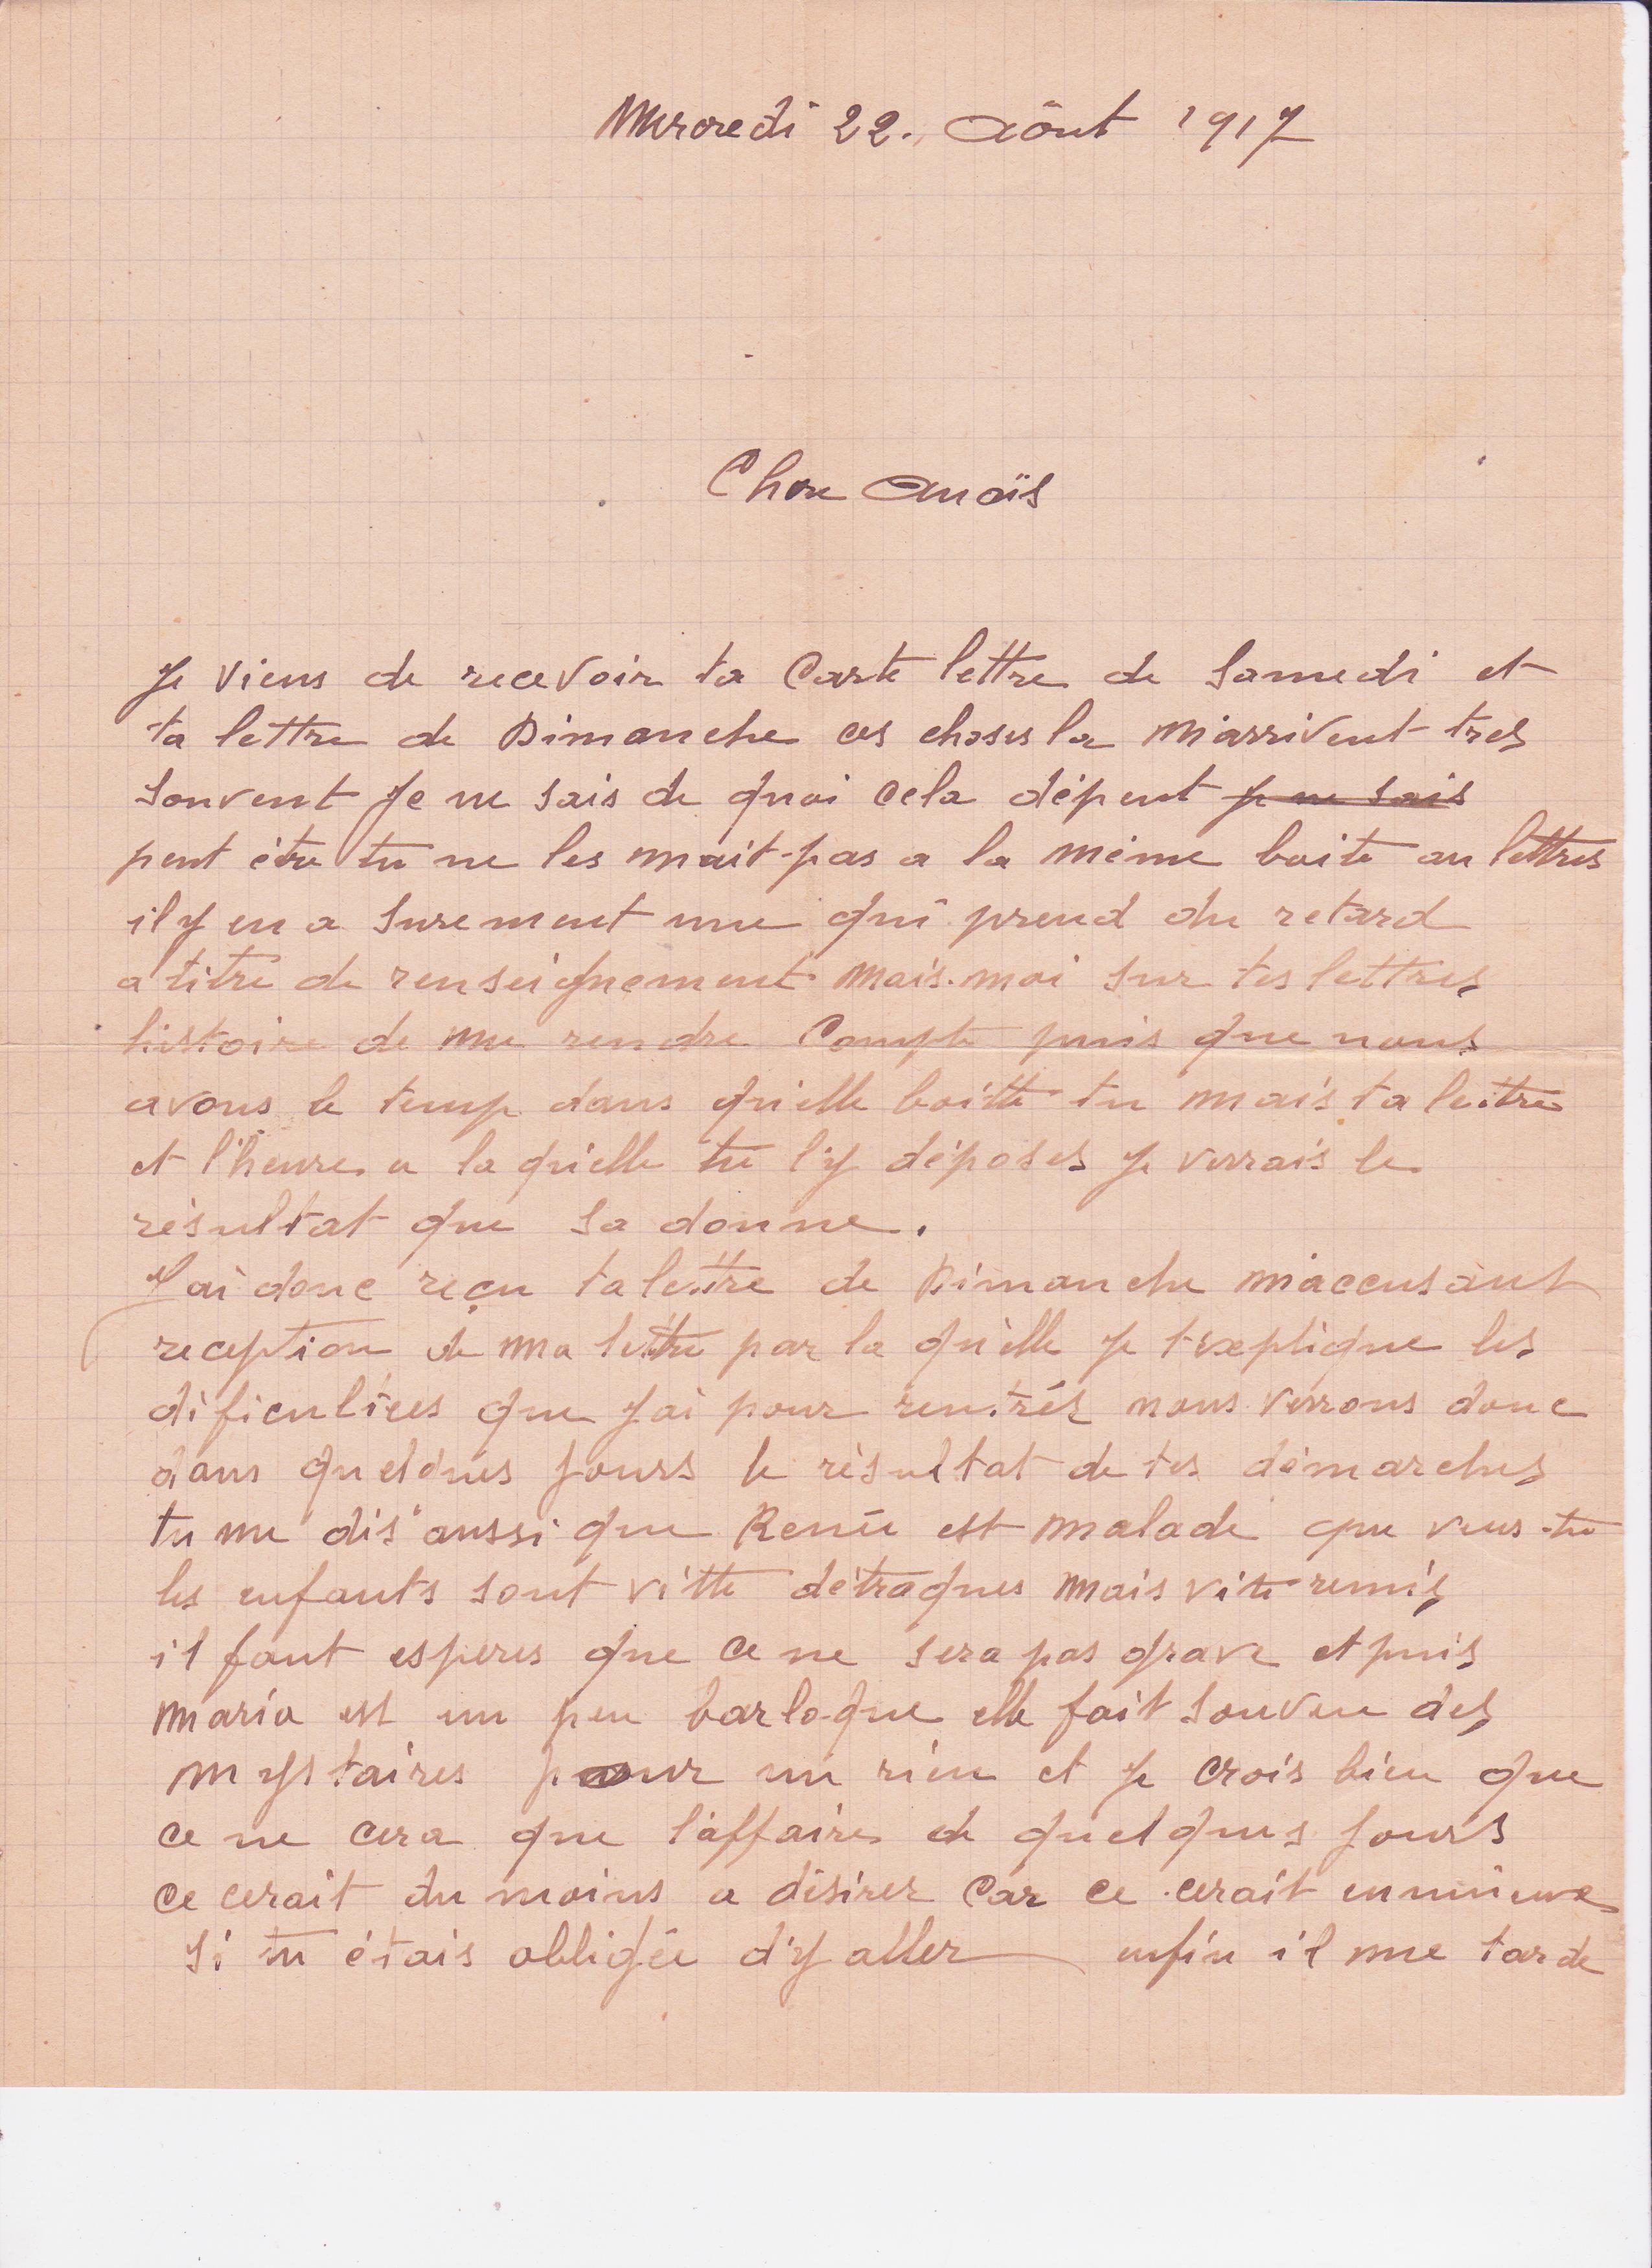 Mercredi 22. Aôut 1917
Chere Anaïs
Je viens de recevoir ta Carte lettre de Samedi et
ta lettre de Dimanche ces choses la m'arrivent tres
souvent Je ne sais de quoi cela dépent je ne sais
peut être tu ne les mait-pas a la même boite au lettres
il y en a surement une qui prend du retard
a titre de renseignement mais-moi sur tes lettres
histoire de me rendre Compte puis que nous
avons le temp dans qu'elle boitte tu mais ta lettre
et l'heure a la qu'elle tu l'y déposes je verrais le
résultat que sa donne.
J'ai donc reçu ta lettre de Dimanche m'accusant
reception de ma lettre par la qu'elle je t'explique les
dificultées que j'ai pour rentrér nous verrons donc
dans quelques jours le résultat de tes démarches
tu me dis aussi que Renée est malade que veus-tu
les enfants sont vitte détraques mais vite remis
il faut esperes que ce ne sera pas grave et puis
Maria est un peu barloque elle fait souven des
mystaires pour un rien et je crois bien que
ce ne cera que l'affaire de quelques jours
ce cerait du moins a désirer Car ce cerait
si tu étais obligée d'y aller enfin il me tarde